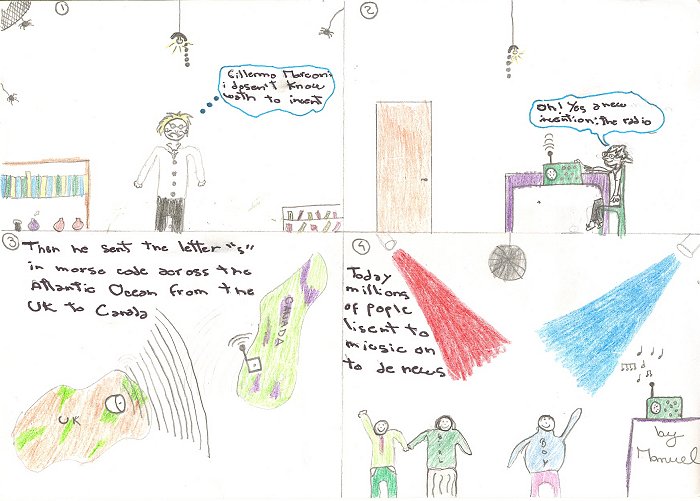 1
Gillermo Marconi
i doesn't know
wath to invent
2
Oh! Yes a new
invention: the radio
3
Then he sent the letter "s"
in morse code across the
Atlantic Ocean from the
UK to Canada
UK
CANADA
4
Today
millions
of pople
lisent to
miusic on
to de news
BOY
by
Manuel